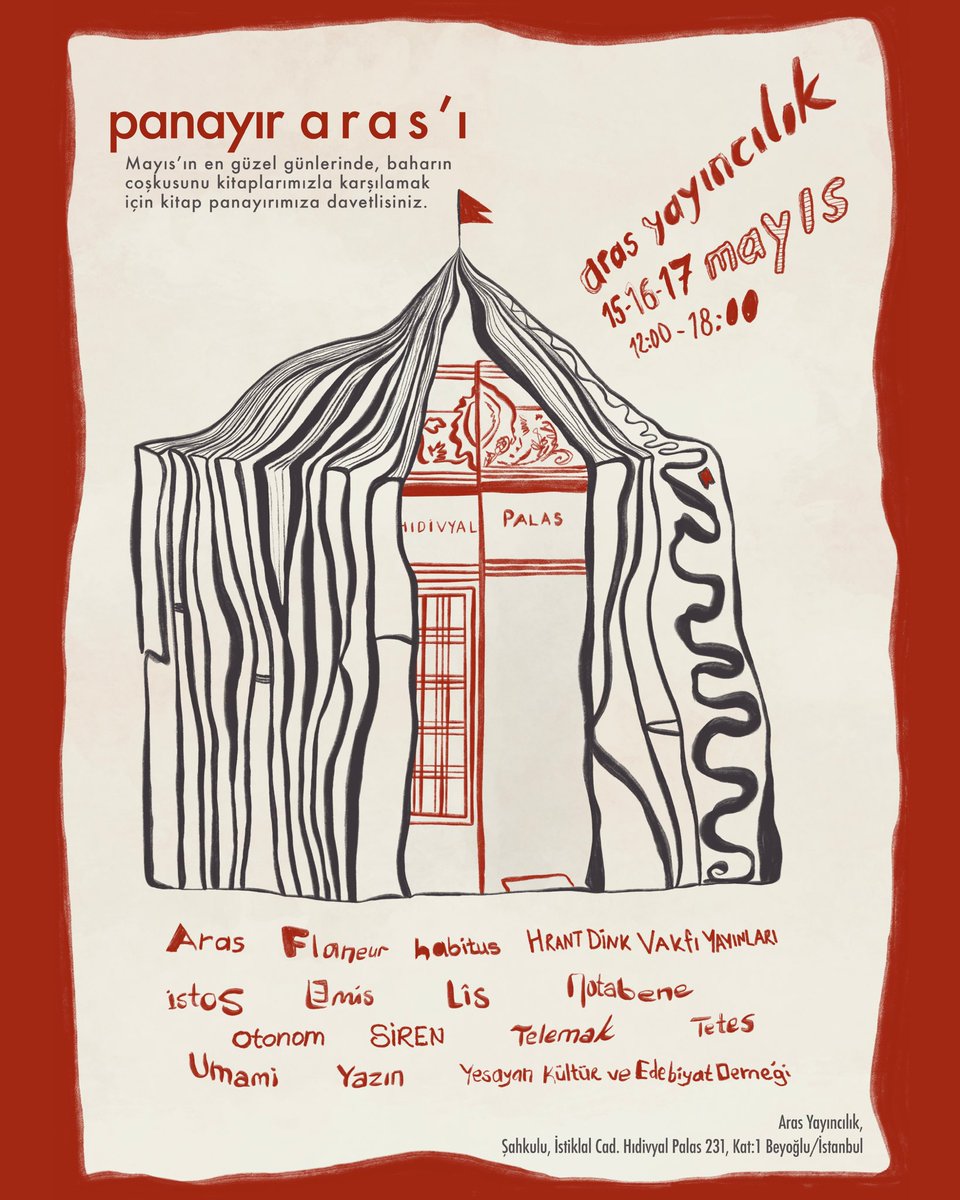 panayır aras'ı
Mayıs'ın en güzel günlerinde, baharın
coşkusunu kitaplarımızla karşılamak
için kitap panayırımıza davetlisiniz.
aras yayıncılık
15-16-17 mayıs
12:00 - 18:00
HIDIVYAL PALAS
Aras Flaneur habitus HRANT DİNK VAKfI YAYINLARI
istos Lîs Notabene
otonom SİREN Telemak Tetes
Umami Yazın Yesayan Kültür ve Edebiyat Derneği
Aras Yayıncılık,
Şahkulu, İstiklal Cad. Hıdivyal Palas 231, Kat:1 Beyoğlu/İstanbul